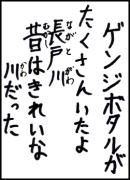 ゲンジボタルが
たくさんいたよ
長戸川
ながとがわ
昔はきれいな
むかし
川だった
かわ